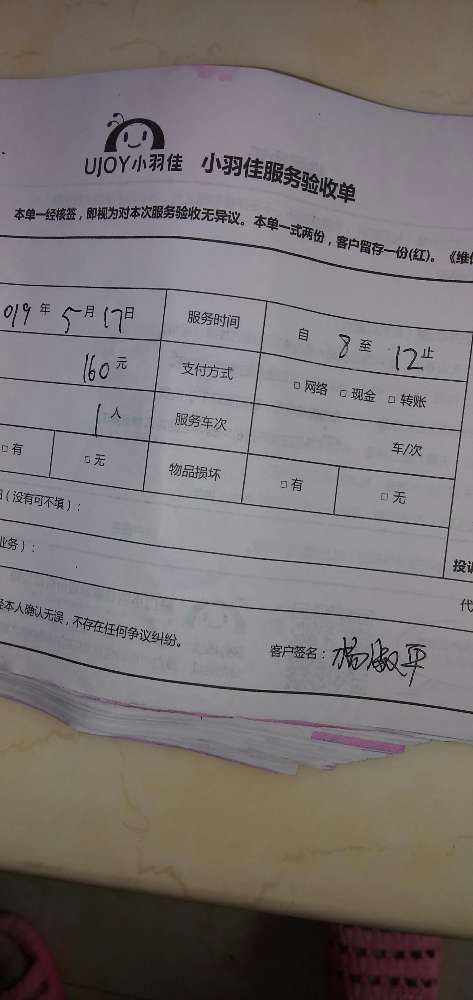 UJOY小羽佳 小羽佳服务验收单
本单一经核签，即视为对本次服务验收无异议。本单一式两份，客户留存一份(红)。《维
019 年 5 月 17 日 服务时间 自 8 至 12 止
160 元 支付方式 □ 网络 □ 现金 □ 转账
1 人 服务车次 车/次
□ 有 □ 无 物品损坏 □ 有 □ 无
（没有可不填）：
业务）：
投诉
代
经本人确认无误，不存在任何争议纠纷。 客户签名：杨淑平